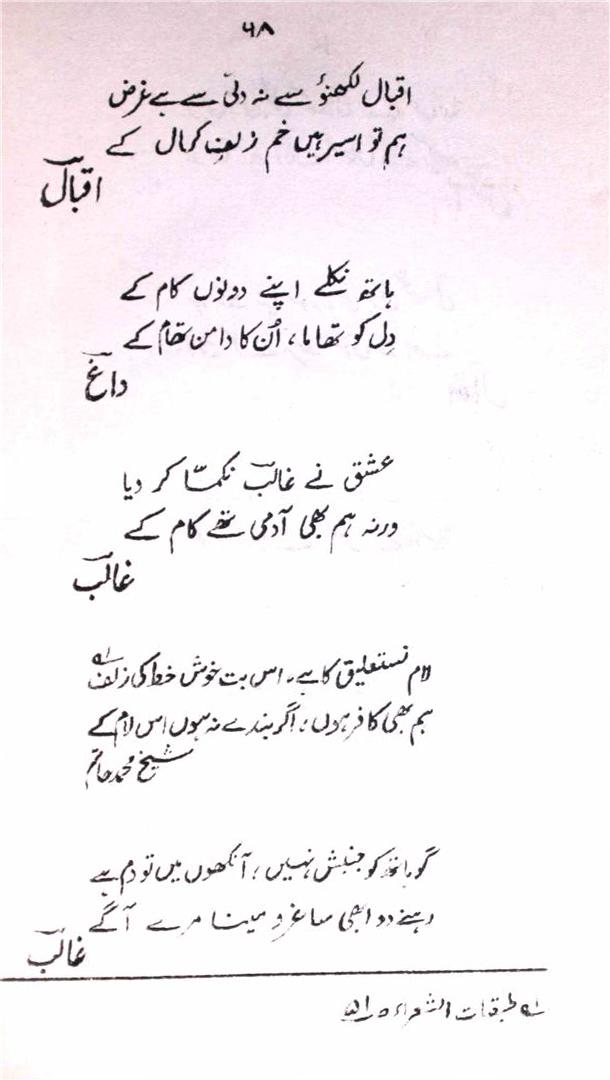 ۶۸
اقبال لکھنؤ سے نہ دلّی سے بے غرض
ہم تو اسیر ہیں خم زلفِ کمال کے
اقبالؔ
ہاتھ نکلے اپنے دونوں کام کے
دِل کو تھاما، اُن کا دامن تھام کے
داغؔ
عشق نے غالبؔ نکمّا کر دیا
ورنہ ہم بھی آدمی تھے کام کے
غالبؔ
لام نستعلیق کا ہے، اس بت خوش خط کی زلف ؎۱
ہم بھی کافر ہوں، اگر بندے نہ ہوں اس لام کے
شیخ محمد حاتم
گو ہاتھ کو جنبش نہیں، آنکھوں میں تو دم ہے
رہنے دو ابھی ساغر و مینا مرے آگے
غالبؔ
؎۱ طبقات الشعراء ص۵۱